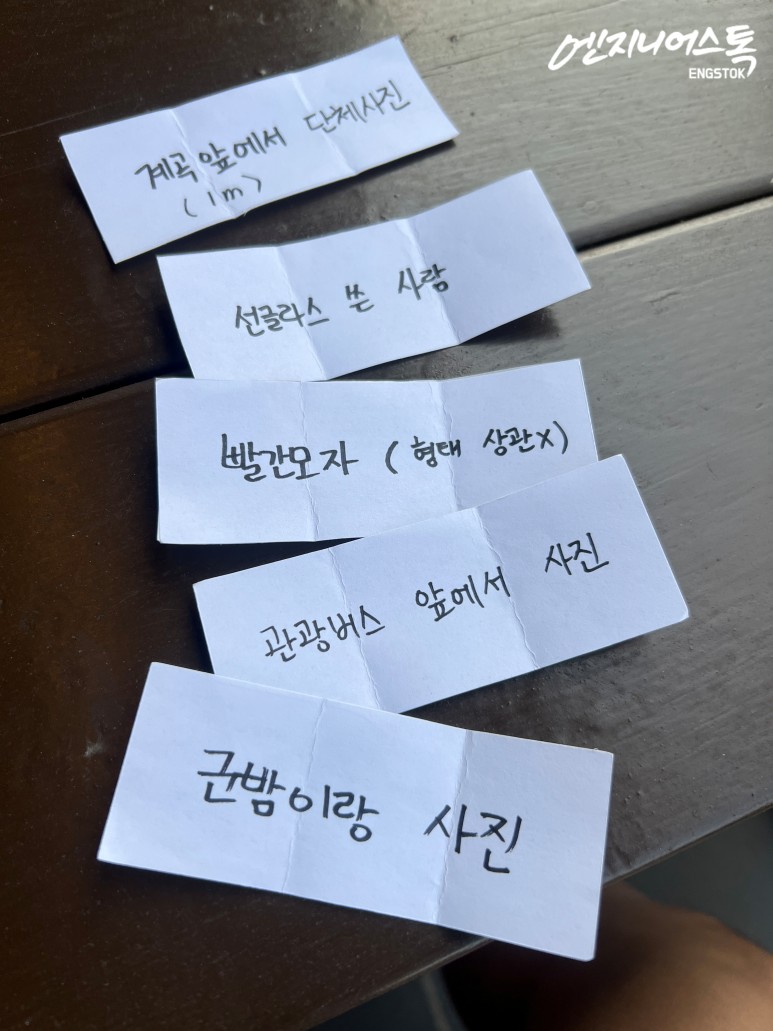 엔지니어스톡
ENGSTOK
계곡앞에서 단체사진
(1m)
선글라스 쓴 사람
빨간모자 (형태 상관X)
관광버스 앞에서 사진
군밤이랑 사진